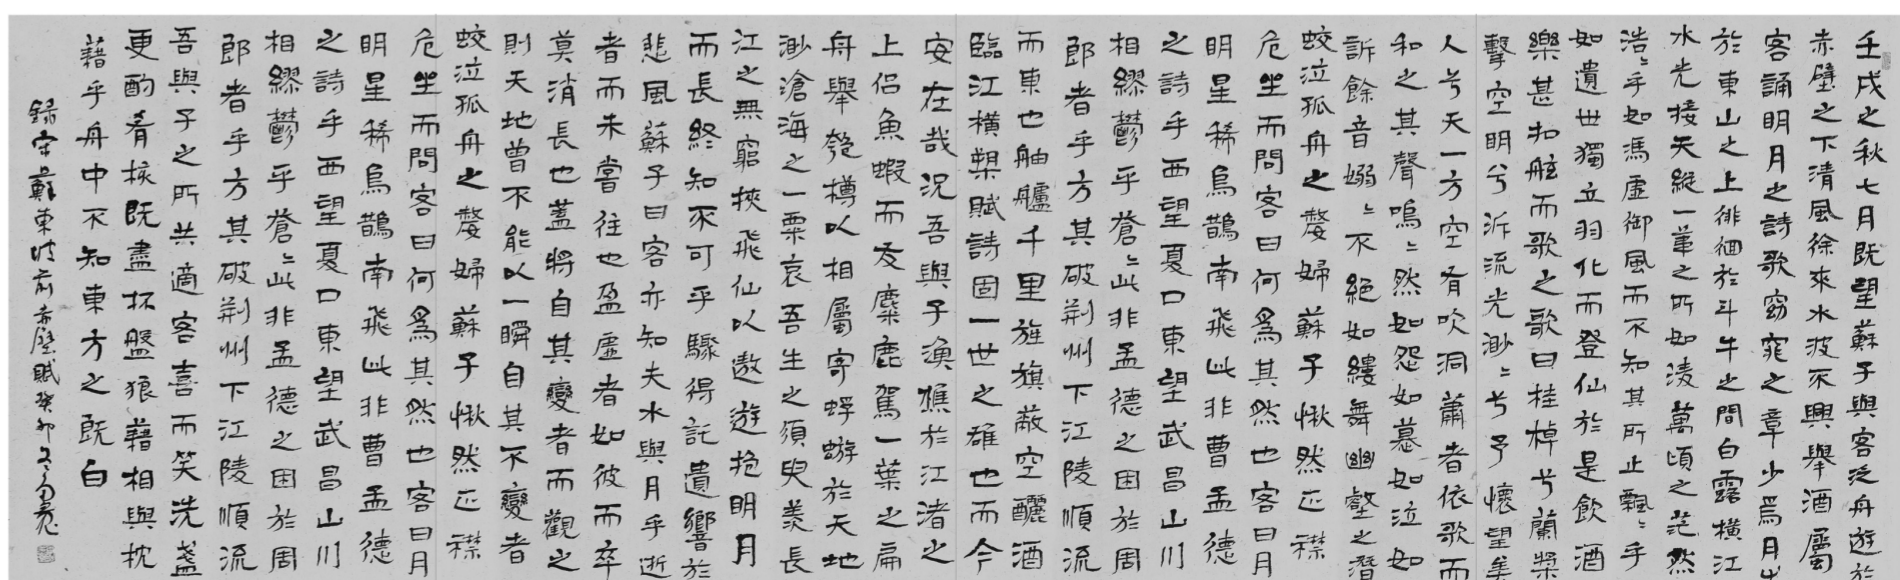 壬戌之秋七月既望蘇子與客泛舟遊於
赤壁之下清風徐來水波不興舉酒屬
客誦明月之詩歌窈窕之章少焉月出
於東山之上徘徊於斗牛之間白露橫江
水光接天縱一葦之所如淩萬頃之茫然
浩〻乎如馮虛御風而不知其所止飄〻乎
如遺世獨立羽化而登仙於是飲酒
樂甚扣舷而歌之歌曰桂棹兮蘭槳
擊空明兮泝流光渺〻兮予懷望美
人兮天一方空有吹洞蕭者依歌而
和之其聲嗚〻然如怨如慕如泣如
訴餘音嫋〻不絕如縷舞幽壑之潛
蛟泣孤舟之嫠婦蘇子愀然正襟
危坐而問客曰何為其然也客曰月
明星稀烏鵲南飛此非曹孟德
之詩乎西望夏口東望武昌山川
相繆鬱乎蒼〻此非孟德之困於周
郎者乎方其破荊州下江陵順流
而東也舳艫千里旌旗蔽空釃酒
臨江橫槊賦詩固一世之雄也而今
安在哉況吾與子漁樵於江渚之
上侶魚蝦而友麋鹿駕一葉之扁
舟舉匏樽以相屬寄蜉蝣於天地
渺滄海之一粟哀吾生之須臾羨長
江之無窮挾飛仙以遨遊抱明月
而長終知不可乎驟得託遺響於
悲風蘇子曰客亦知夫水與月乎逝
者而未嘗往也盈虛者如彼而卒
莫消長也蓋將自其變者而觀之
則天地曾不能以一瞬自其不變者
蛟泣孤舟之嫠婦蘇子愀然正襟
危坐而問客曰何為其然也客曰月
明星稀烏鵲南飛此非曹孟德
之詩乎西望夏口東望武昌山川
相繆鬱乎蒼〻此非孟德之困於周
郎者乎方其破荊州下江陵順流
吾與子之所共適客喜而笑洗盞
更酌肴核既盡杯盤狼藉相與枕
藉乎舟中不知東方之既白
錄宋蘇東坡前赤壁賦癸卯冬